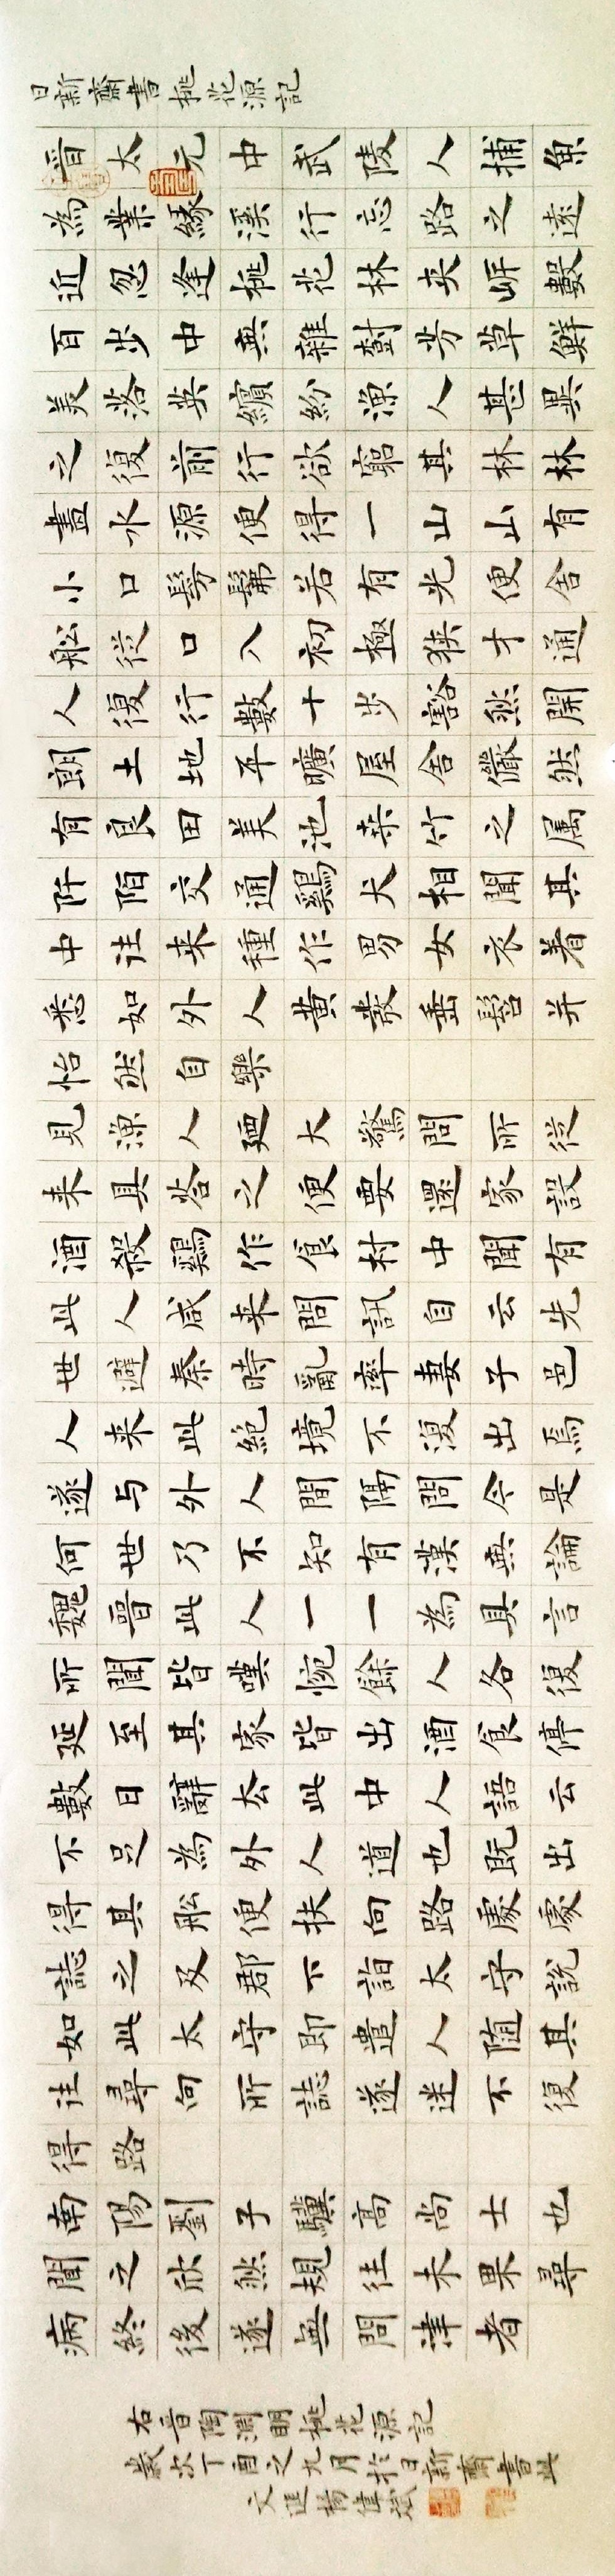 日新齋書桃花源記
晉太元中武陵人捕魚
為業緣溪行忘路之遠
近忽逢桃花林夹岸數
百步中無雜樹芳草鮮
美落英繽紛漁人甚異
之復前行欲窮其林林
盡水源便得一山山有
小口髣髴若有光便舍
舩從口入初極狭才通
人復行數十步豁然開
朗土地平曠屋舍儼然
有良田美池桒竹之属
阡陌交通鷄犬相聞其
中往来種作男女衣着
悉如外人黄發垂髫并
怡然自樂
見漁人廼大驚問所從
来具答之便要還家設
酒殺鷄作食村中聞有
此人咸来問訊自云先
世避秦時亂率妻子邑
人来此絶境不復出焉
遂与外人間隔問今是
何世乃不知有漢無論
魏晉此人一一為具言
所聞皆嘆惋餘人各復
延至其家皆出酒食停
數日辭去此中人語云
不足為外人道也既出
得其舩便扶向路處處
誌之及郡下詣太守說
如此太守即遣人随其
往尋向所誌遂迷不復
得路
南陽劉子驥高尚士也
聞之欣然規往未果尋
病終後遂無問津者
右晉陶淵明桃花源記
歲次丁酉之九月於日新齋書此
文進楊偉斌